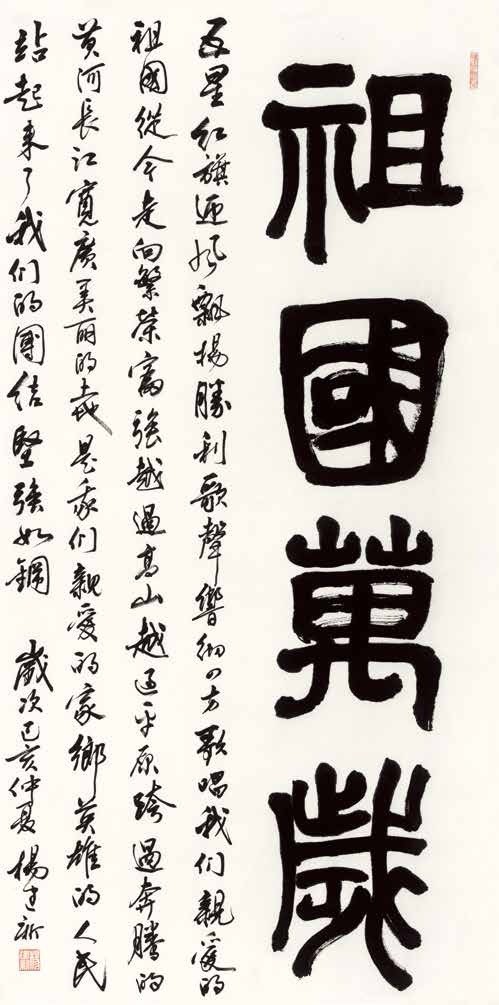 祖國萬歲
五星红旗迎风飄揚勝利歌聲響彻四方歌唱我们親愛的
祖國從今走向繁荣富强越過高山越过平原跨過奔腾的
黄河長江寬廣美丽的土地是我们親愛的家鄉英雄的人民
站起来了我们的團结堅强如鋼 歲次己亥仲夏楊